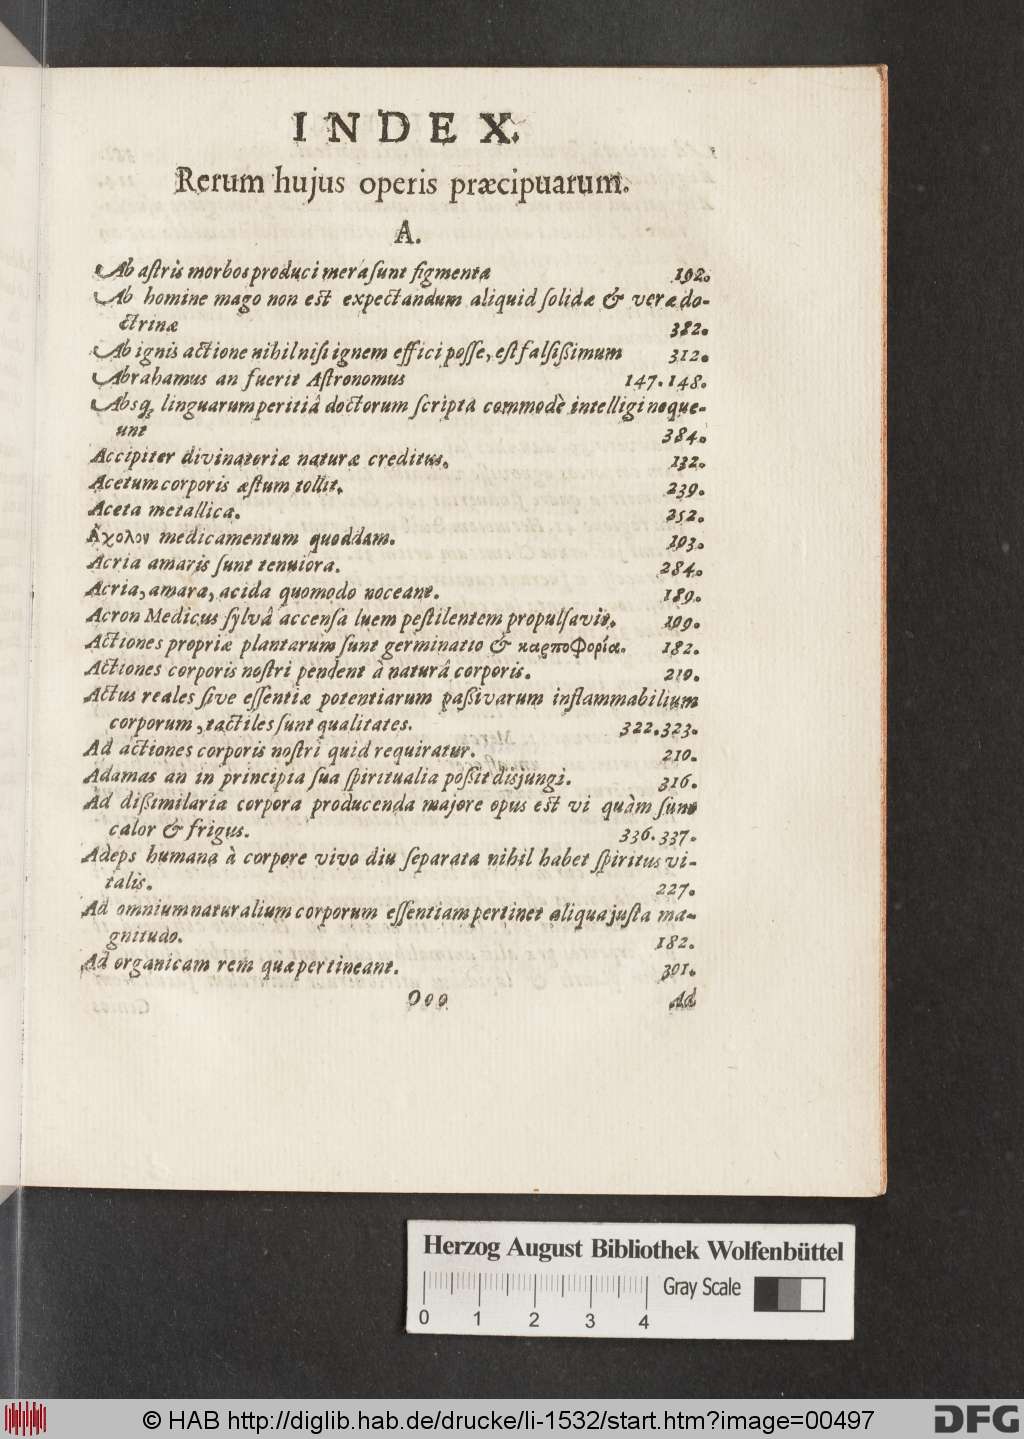 INDEX.
Rerum hujus operis præcipuarum.
A.
Ab astris morbos produci mera sunt figmenta 192.
Ab homine mago non est expectandum aliquid solidæ & veræ do-
ctrinæ 382.
Ab ignis actione nihil nisi ignem effici posse, est falsißimum 312.
Abrahamus an fuerit Astronomus 147. 148.
Absq; linguarum peritiâ doctorum scripta commodè intelligi neque-
unt 384.
Accipiter divinatoriæ naturæ creditus. 132.
Acetum corporis æstum tollit. 239.
Aceta metallica. 252.
Ἄχολον medicamentum quoddam. 193.
Acria amaris sunt tenuiora. 284.
Acria, amara, acida quomodo noceant. 189.
Acron Medicus sylvâ accensa luem pestilentem propulsavit. 199.
Actiones propriæ plantarum sunt germinatio & καρποφορία. 182.
Actiones corporis nostri pendent à naturâ corporis. 210.
Actus reales sive essentiæ potentiarum paßivarum inflammabilium
corporum, tactiles sunt qualitates. 322. 323.
Ad actiones corporis nostri quid requiratur. 210.
Adamas an in principia sua spiritualia poßit disjungi. 316.
Ad dißimilaria corpora producenda majore opus est vi quàm sunt
calor & frigus. 336. 337.
Adeps humana à corpore vivo diu separata nihil habet spiritus vi-
talis. 227.
Ad omnium naturalium corporum essentiam pertinet aliqua justa ma-
gnitudo. 182.
Ad organicam rem quæ pertineant. 301.
Ooo Ad
Herzog August Bibliothek Wolfenbüttel
Gray Scale
0 1 2 3 4
© HAB http://diglib.hab.de/drucke/li-1532/start.htm?image=00497
DFG